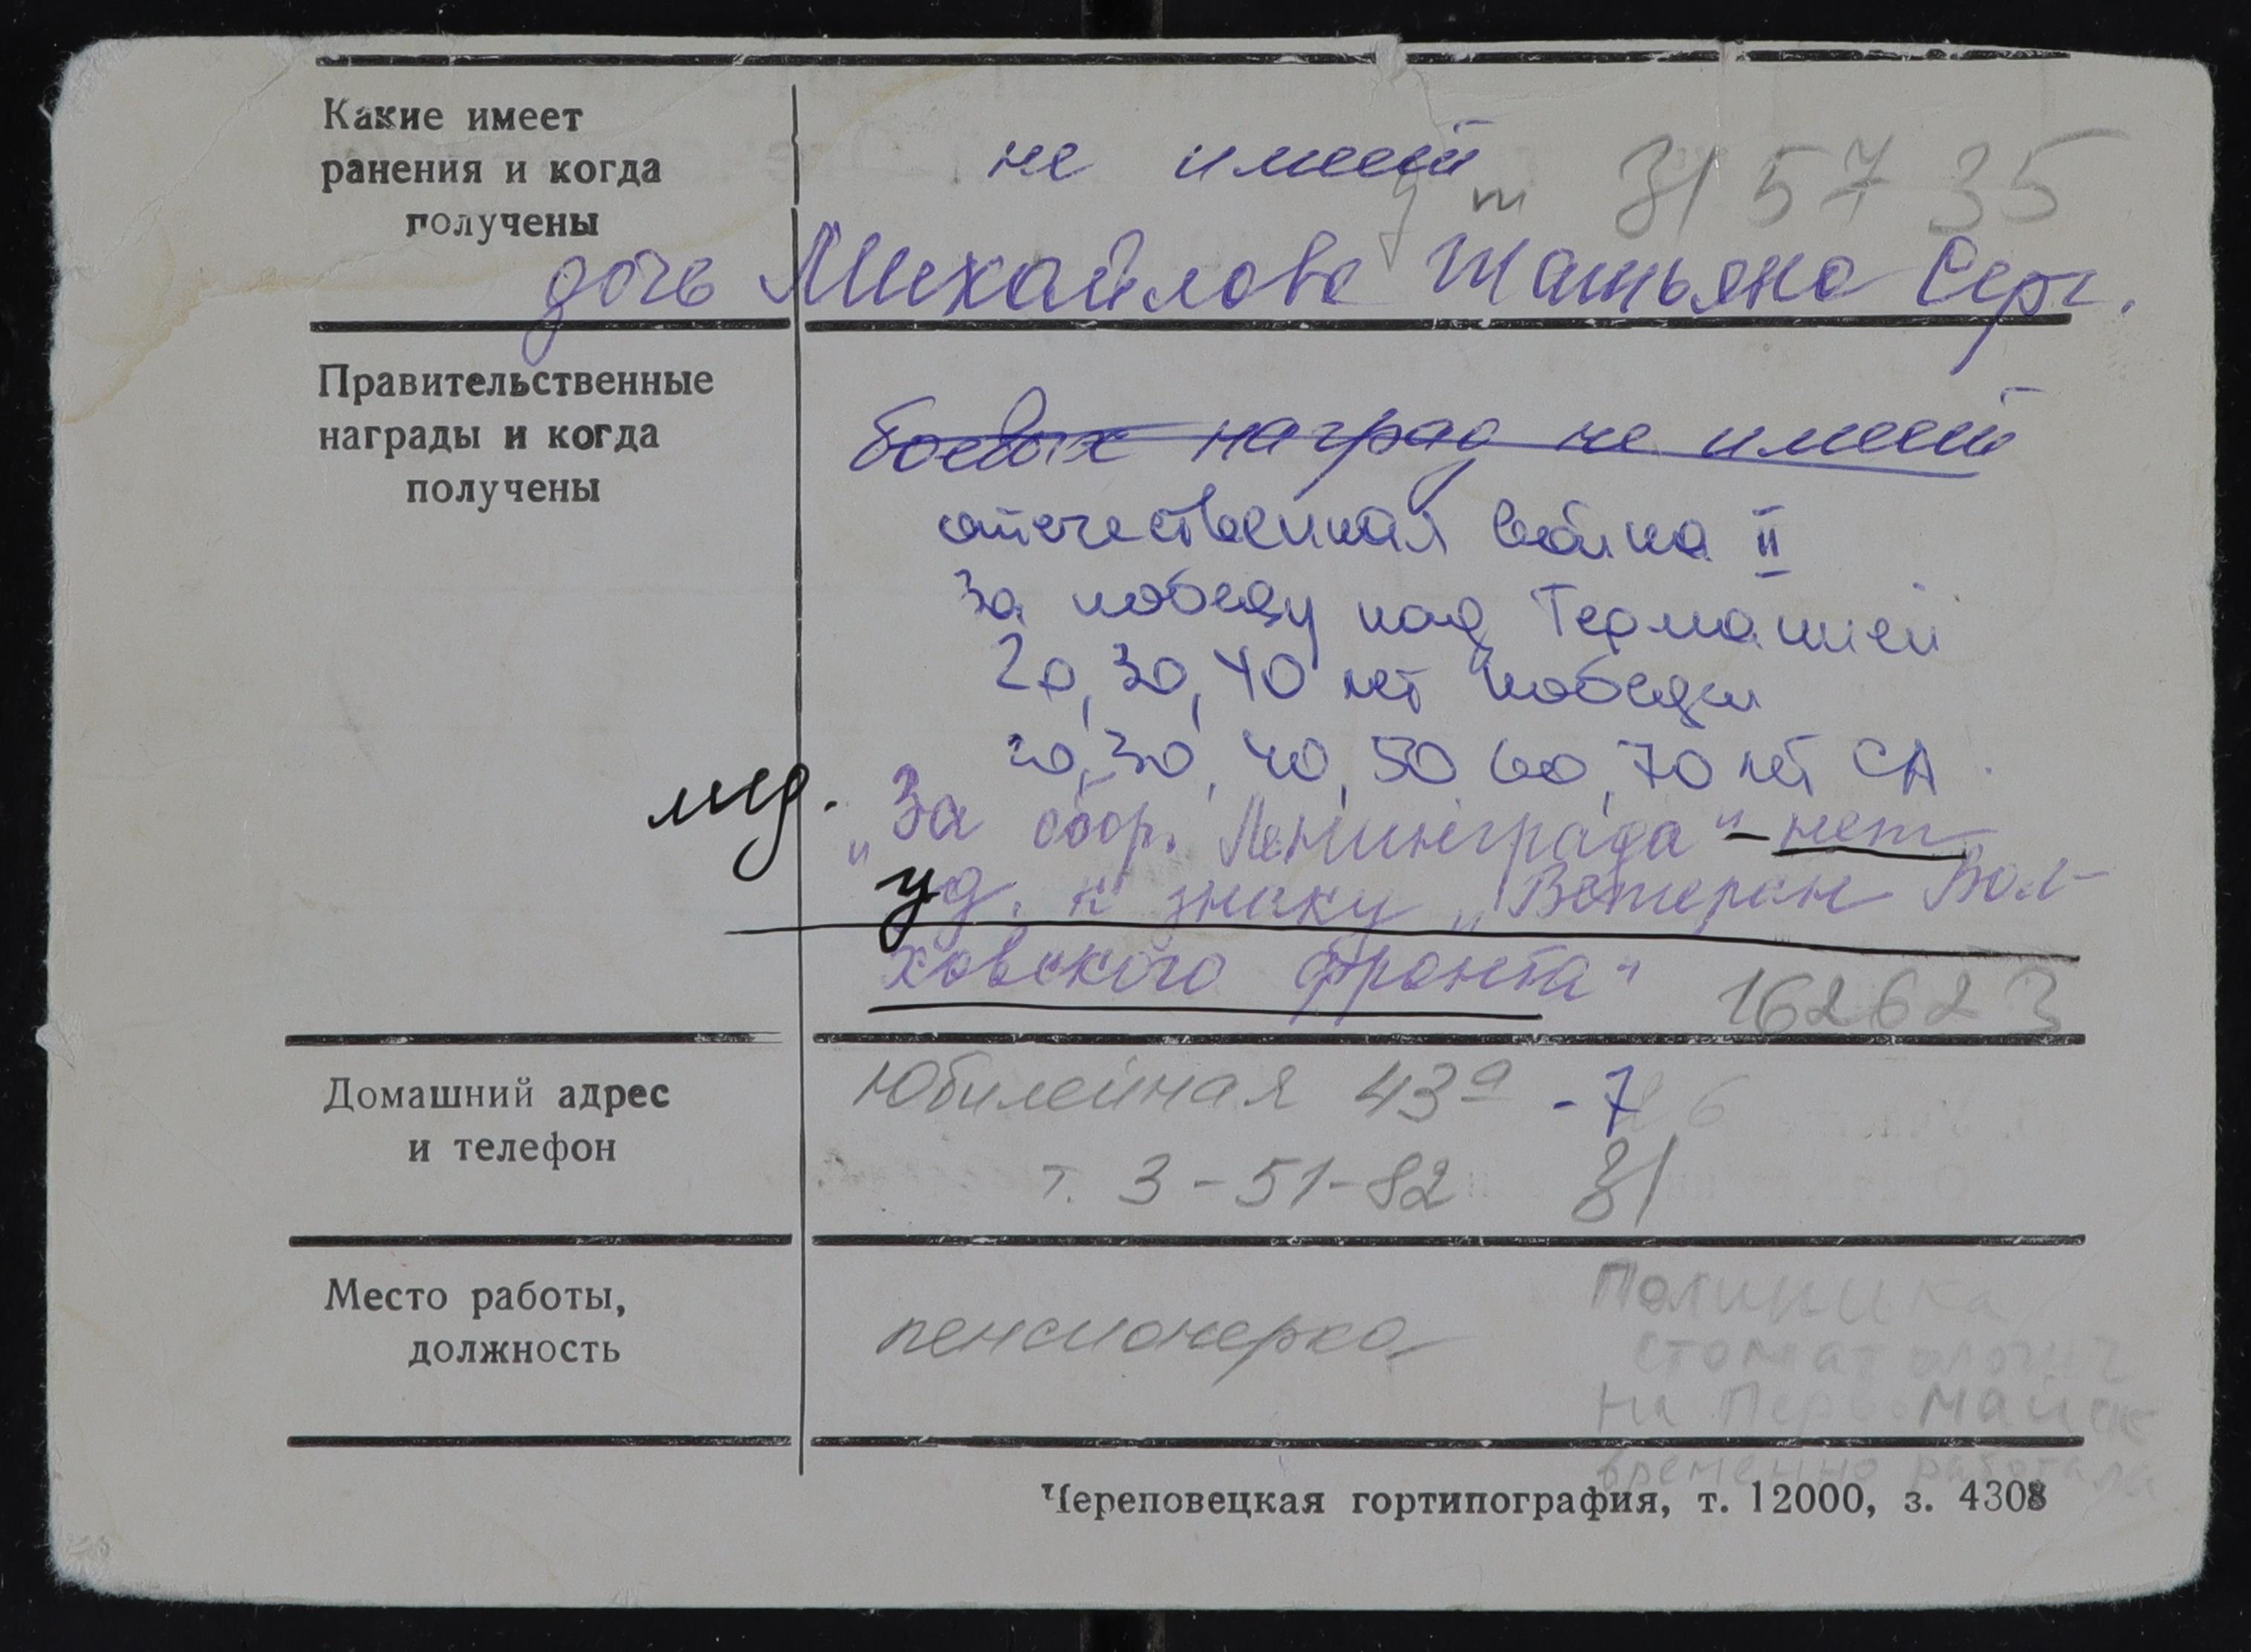 Какие имеет
ранения и когда
получены
не имеет
т 31 57 35
дочь Михайлова Татьяна Серг.
Правительственные
награды и когда
получены
боевых наград не имеет
отечественная война II
За победу над Германией
20, 30, 40 лет победы
20, 30, 40, 50 60, 70 лет СА
мед.
„За обор. Ленинграда" – нет
уд. к знаку „Ветеран Вол-
ховского фронта"
162623
Домашний адрес
и телефон
Юбилейная 43а - 7
т. 3-51-82 31
Место работы,
должность
пенсионерка
Полиника
стоматологич
на Первомайск
временно работала
Череповецкая гортипография, т. 12000, з. 4308